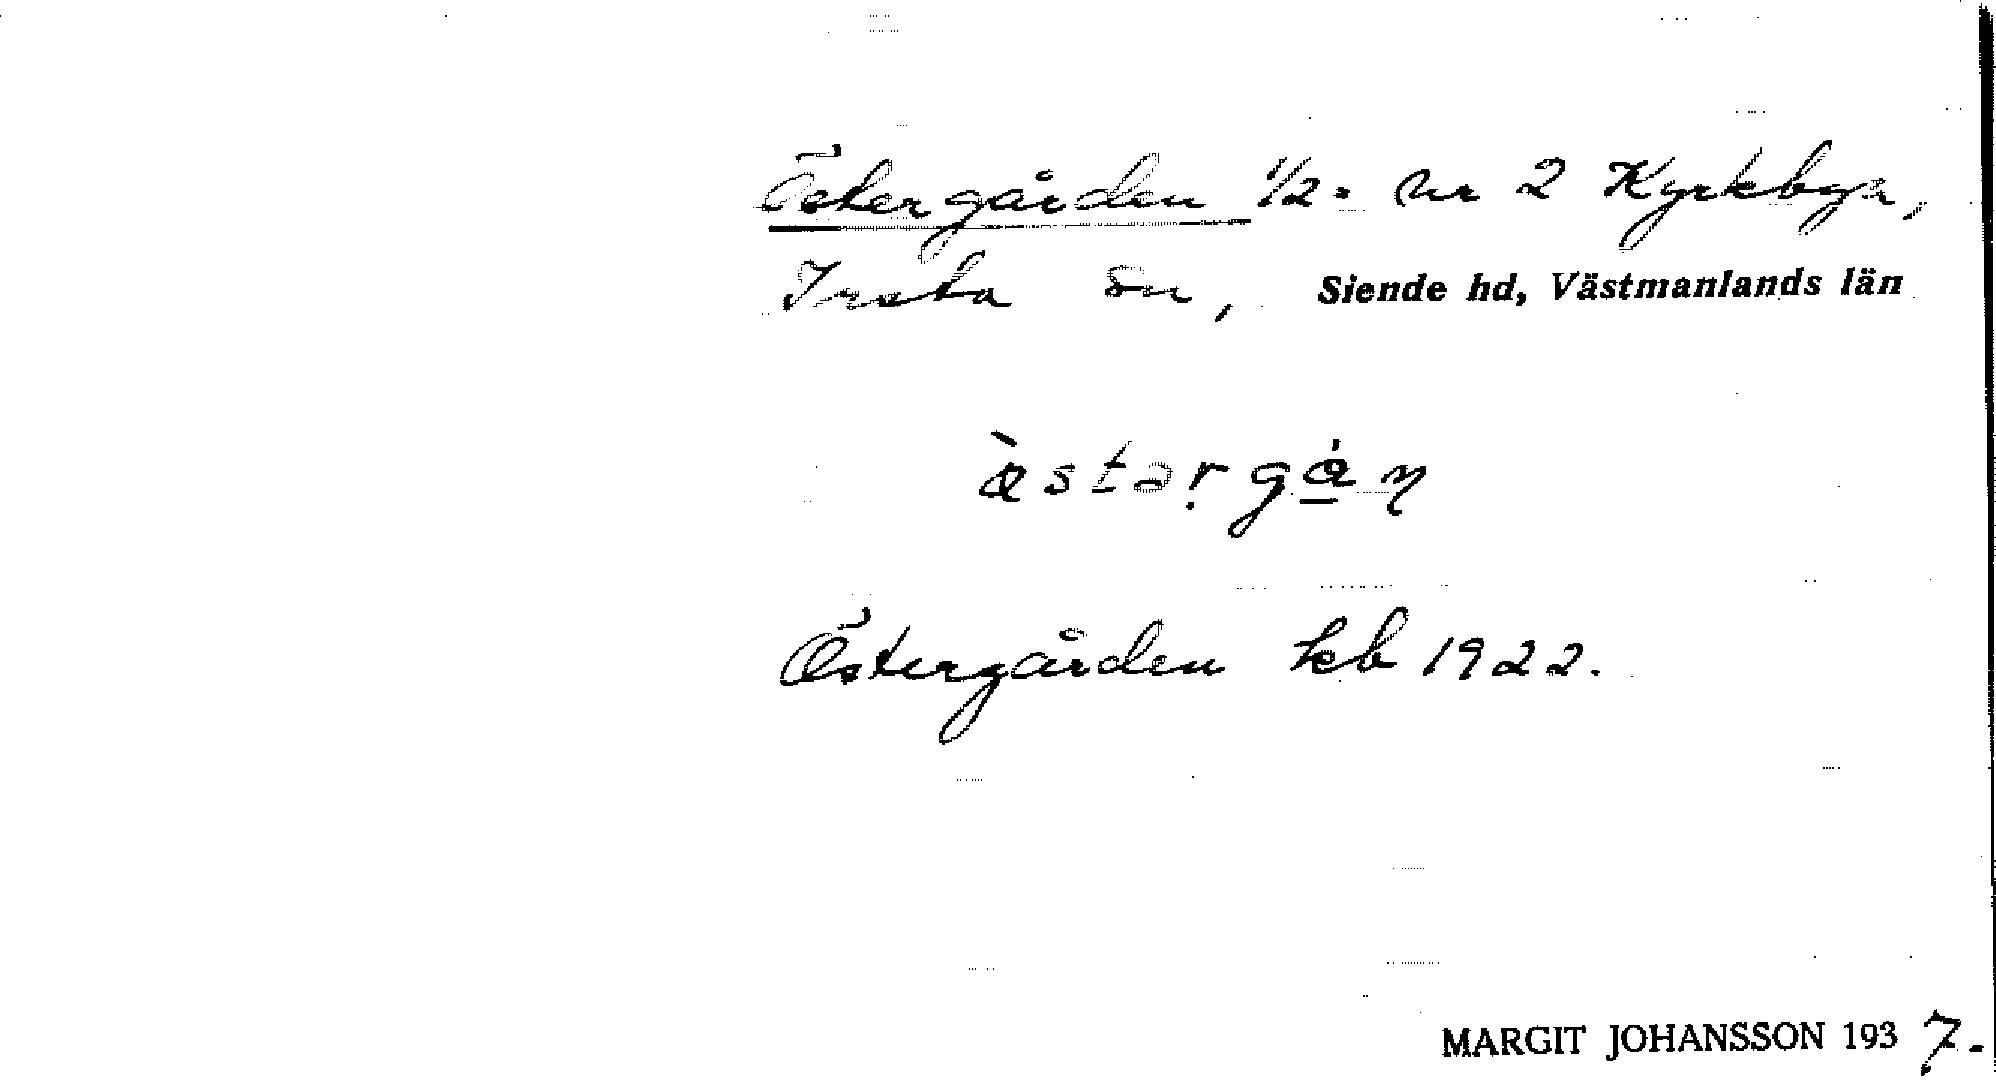 Östergården 1/2 nr 2 Kyrkbyn,
Irsta sn, Siende hd, Västmanlands län
Östergården kb 1922.
MARGIT JOHANSSON 1937.